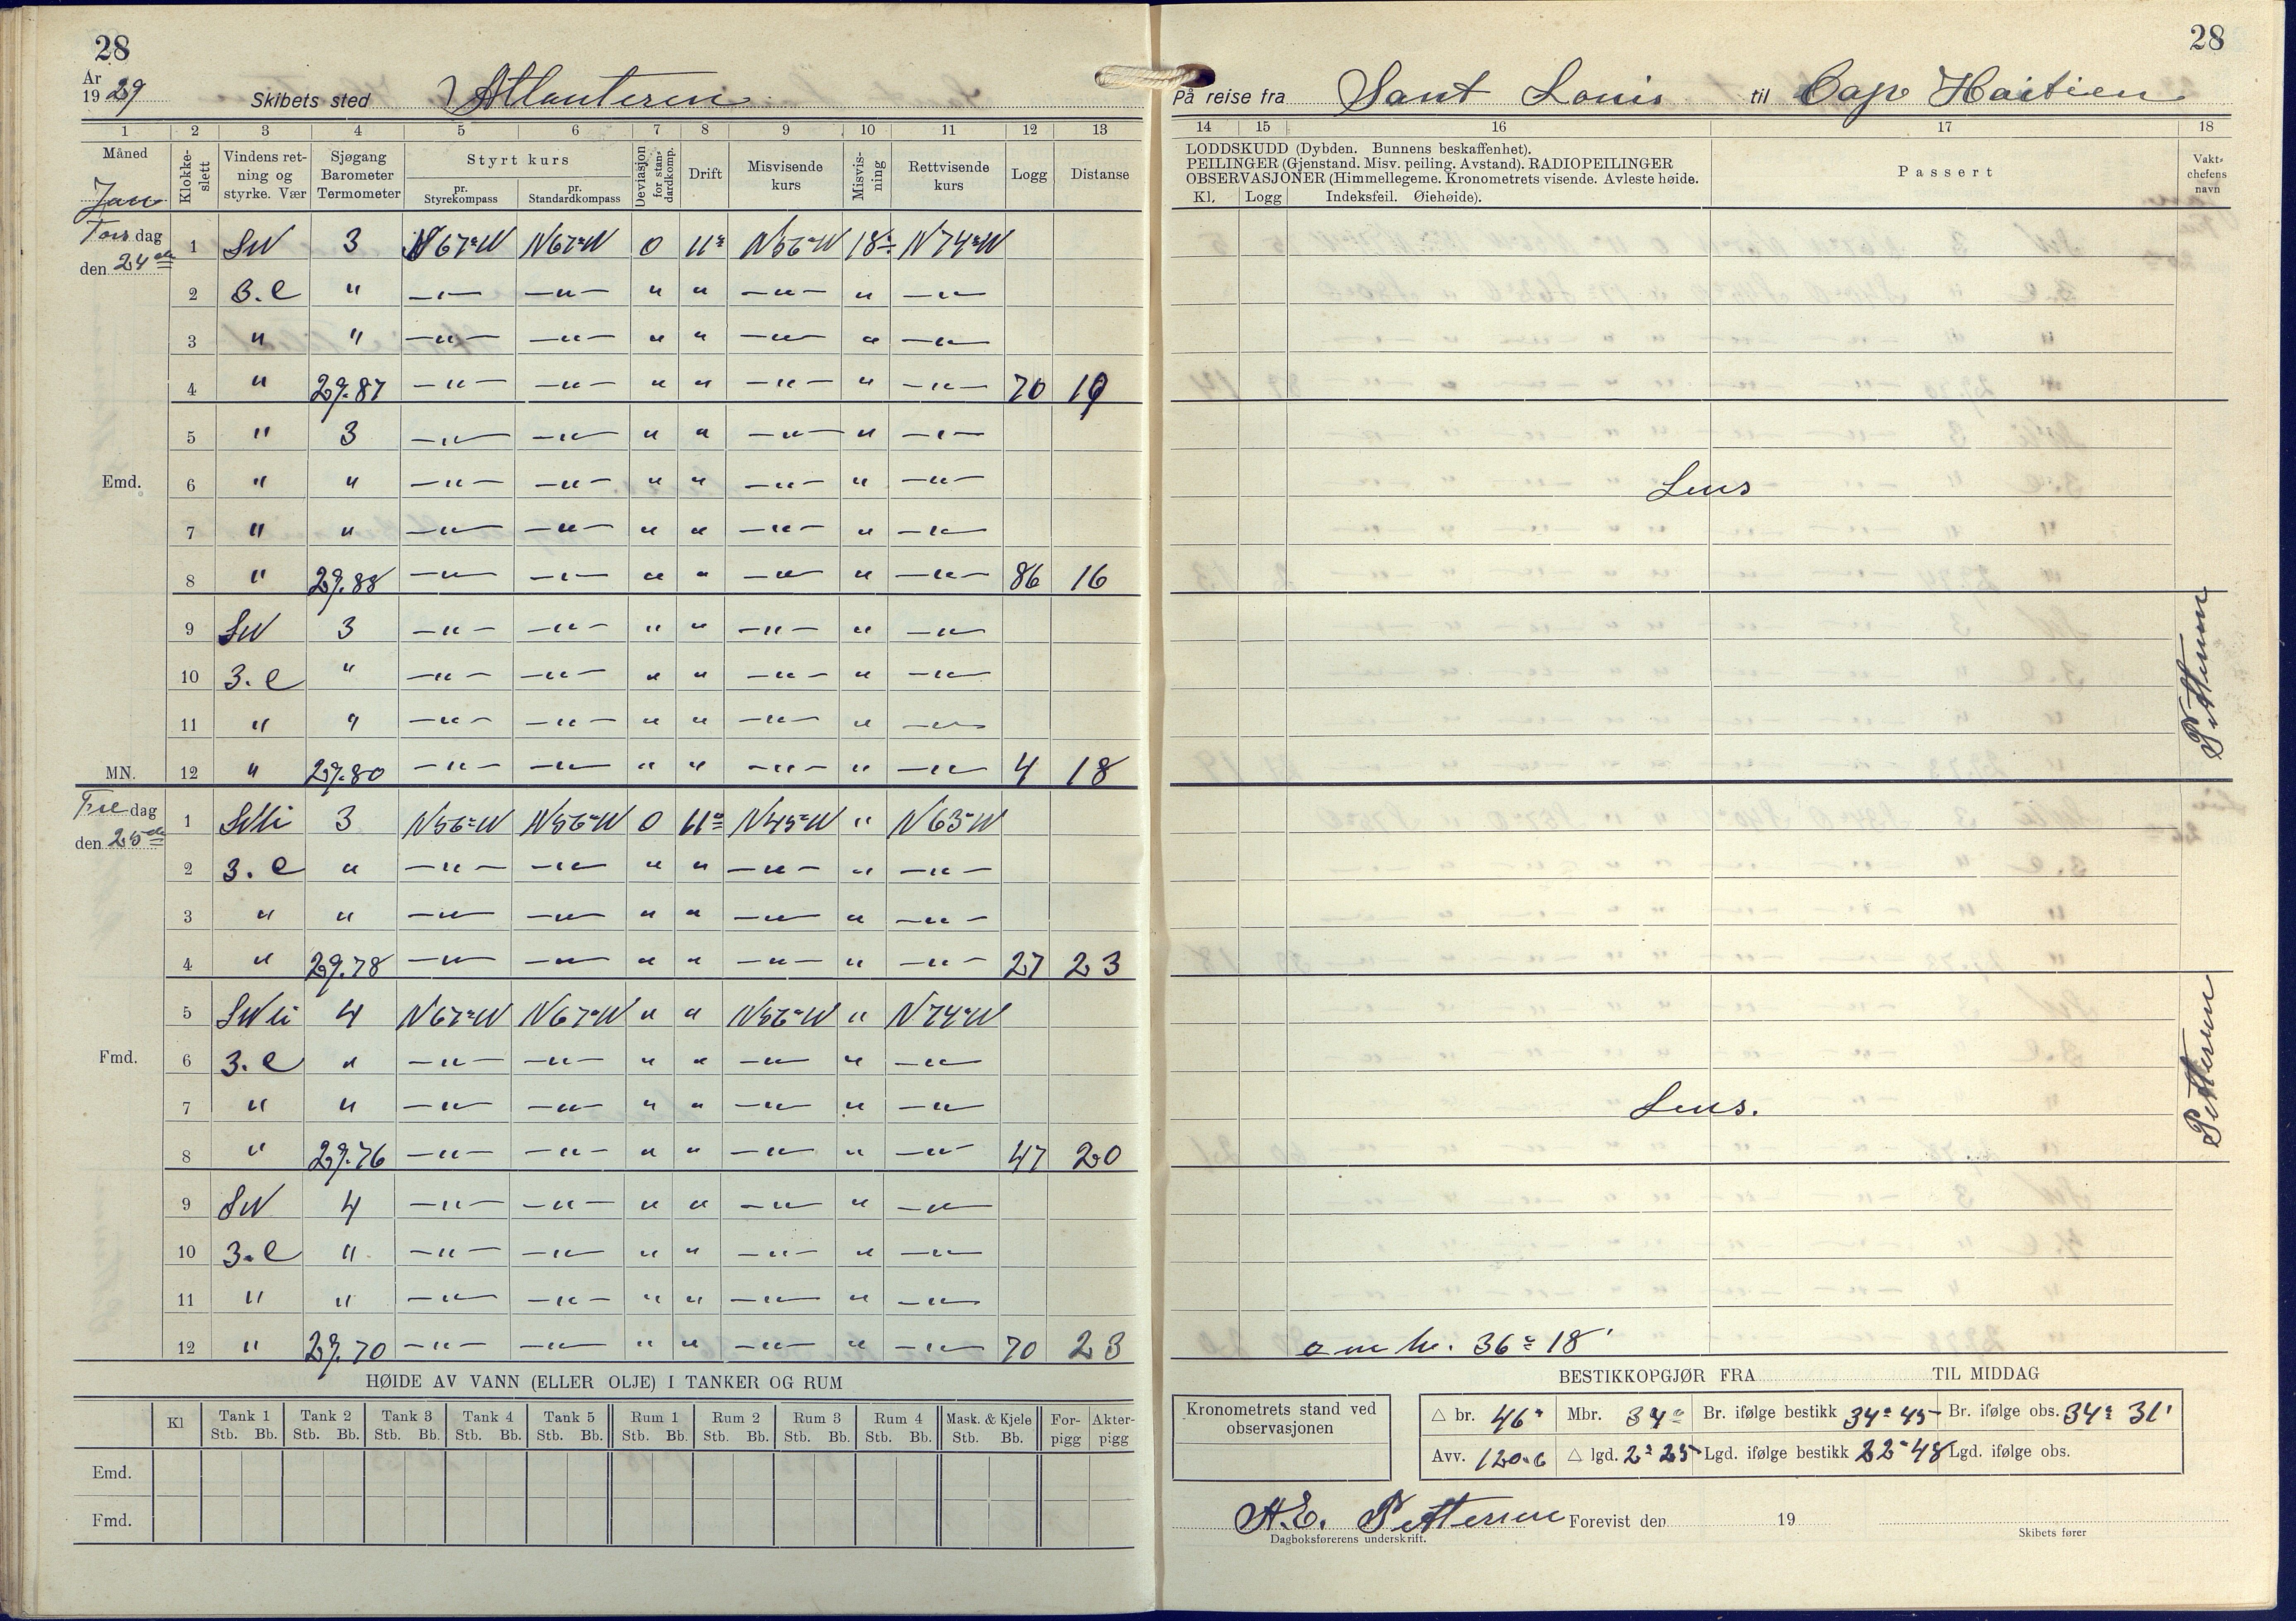 28
År
1929
Skibets sted Atlanteren
1 2 3 4 5 6 7 8 9 10 11 12 13
Måned
Jan
Klokke-
slett
Vindens ret-
ning og
styrke. Vær
Sjøgang
Barometer
Termometer
Styrt kurs
pr.
Styrekompass
pr.
Standardkompass
Deviasjon
for stan-
dardkomp.
Drift
Misvisende
kurs
Misvis-
ning
Rettvisende
kurs
Logg
Distanse
Tors dag
den 24de
1 SW 3 N67°W N67°W 0 11° N56°W 18° N74°W
2 3.C " —"— —"— " " —"— " —"—
3 " " —"— —"— " " —"— " —"—
4 " 29.87 —"— —"— " " —"— " —"— 70 19
5 " 3 —"— —"— " " —"— " —"—
Emd. 6 " " —"— —"— " " —"— " —"—
7 " " —"— —"— " " —"— " —"—
8 " 29.88 —"— —"— " " —"— " —"— 86 16
9 SW 3 —"— —"— " " —"— " —"—
10 3.C " —"— —"— " " —"— " —"—
11 " " —"— —"— " " —"— " —"—
MN. 12 " 29.80 —"— —"— " " —"— " —"— 4 18
Fre dag
den 25de
1 SWli 3 N56°W N56°W 0 11° N45°W " N63°W
2 3.C " —"— —"— " " —"— " —"—
3 " " —"— —"— " " —"— " —"—
4 " 29.78 —"— —"— " " —"— " —"— 27 23
5 SWli 4 N67°W N67°W " " N56°W " N74°W
Fmd. 6 3.C " —"— —"— " " —"— " —"—
7 " " —"— —"— " " —"— " —"—
8 " 29.76 —"— —"— " " —"— " —"— 47 20
9 SW 4 —"— —"— " " —"— " —"—
10 3.C " —"— —"— " " —"— " —"—
11 " " —"— —"— " " —"— " —"—
12 " 29.70 —"— —"— " " —"— " —"— 70 23
HØIDE AV VANN (ELLER OLJE) I TANKER OG RUM
Kl Tank 1 Tank 2 Tank 3 Tank 4 Tank 5 Rum 1 Rum 2 Rum 3 Rum 4 Mask. & Kjele For- Akter-
Stb. Bb. Stb. Bb. Stb. Bb. Stb. Bb. Stb. Bb. Stb. Bb. Stb. Bb. Stb. Bb. Stb. Bb. Stb. Bb. pigg pigg
Emd.
Fmd.
28
På reise fra Sant Louis til Cap Haitien
14 15 16 17 18
LODDSKUDD (Dybden. Bunnens beskaffenhet).
PEILINGER (Gjenstand. Misv. peiling. Avstand). RADIOPEILINGER
OBSERVASJONER (Himmellegeme. Kronometrets visende. Avleste høide.
Kl. Logg Indeksfeil. Øiehøide).
Passert
Vakt-
chefens
navn
Lens
Pettersen
Lens.
Pettersen
36° 18'
BESTIKKOPGJØR FRA TIL MIDDAG
Kronometrets stand ved
observasjonen
△ br. 46' Mbr. 34° Br. ifølge bestikk 34° 45 Br. ifølge obs. 34° 31'
Avv. 120.6 △ lgd. 2° 25 Lgd. ifølge bestikk 22° 48 Lgd. ifølge obs.
H.E. Pettersen Forevist den 19
Dagboksførerens underskrift. Skibets fører